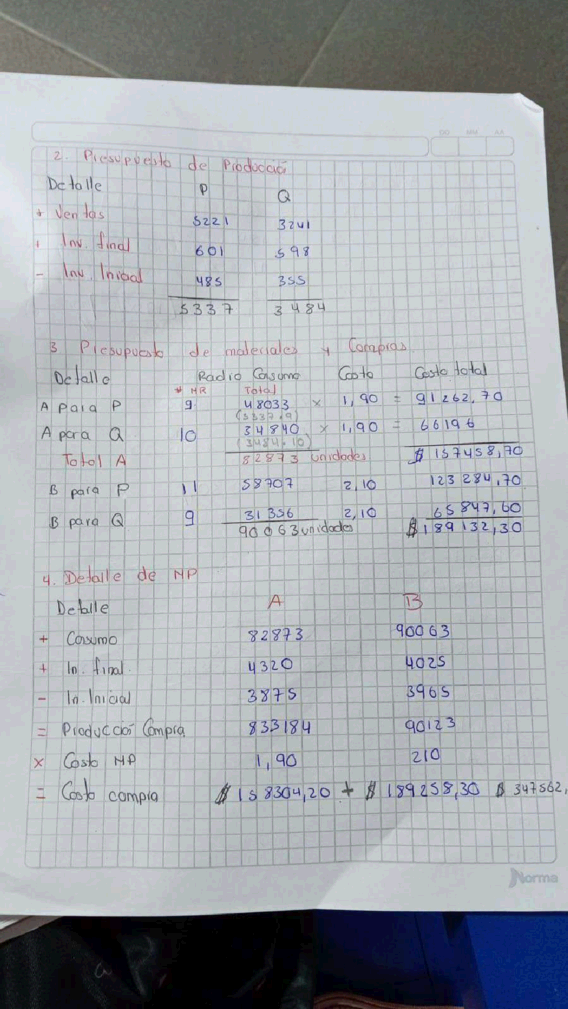 2. Presupuesto de Producció
Detalle P Q
+ Ventas 5221 3241
+ Inv. final 601 598
- Inv. Inicial 485 355
5337 3484
3 Presupuesto de materiales y Compras
Detalle Radio Cosumo Costo Costo total
* MR Total
A Para P 9 48033 x 1,90 = 91262,70
(5337.9)
A para Q 10 34840 x 1,90 = 66196
(3484.10)
Total A 82873 unidades $ 157458,70
B para P 11 58707 2,10 123284,70
B para Q 9 31356 2,10 65847,60
90063 unidades $ 189132,30
4. Detalle de MP
Detalle A B
+ Cosumo 82873 90063
+ In. final 4320 4025
- In. Inicial 3875 3965
= Producció Compra 833184 90123
x Costo MP 1,90 210
= Costo compra $ 158304,20 + $ 189258,30 $ 347562,
Norma